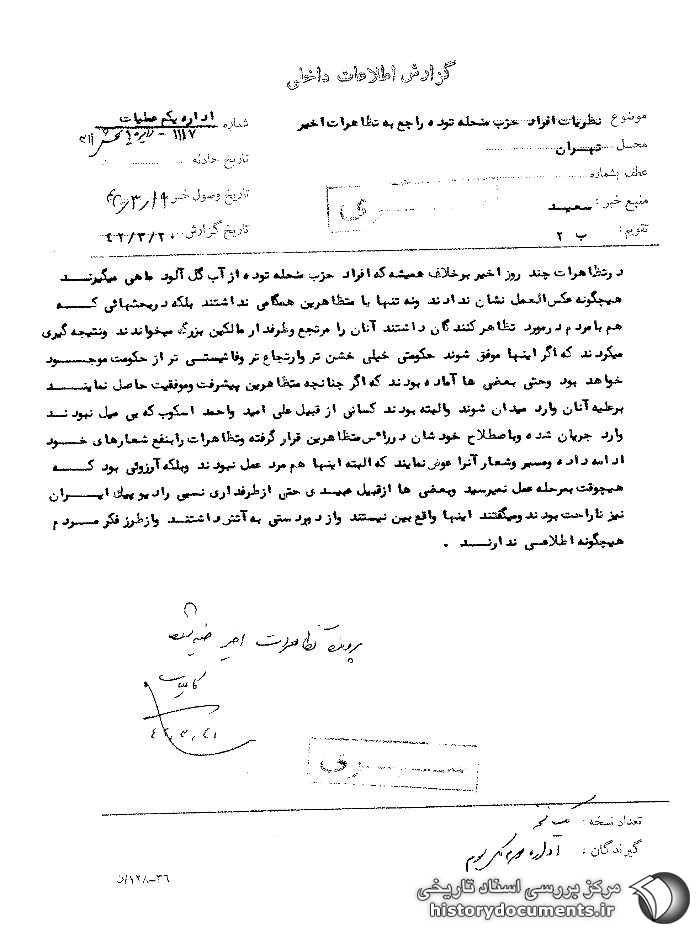 گزارش اطلاعات داخلی
موضوع نظریات افراد حزب منحله توده راجع به تظاهرات اخیر
محل تهران
عطف بشماره
منبع خبر: سعید
تقویم: ب ۲
اداره یکم عملیات
شماره ۱۱۱۷ -
تاریخ حادثه
تاریخ وصول خبر ۱۹/۳/
تاریخ گزارش ۴۲/۳/۲۰
سری
درتظاهرات چند روز اخیر برخلاف همیشه که افراد حزب منحله توده از آب گل آلود ماهی میگیرند
هیچگونه عکس العمل نشان ندادند ونه تنها با متظاهرین همگامی نداشتند بلکه دربحثهائی که
هم با مردم درمورد تظاهرکنندگان داشتند آنان را مرتجع وطرفدار مالکین بزرگ میخواندند ونتیجه گیری
میکردند که اگر اینها موفق شوند حکومتی خیلی خشن تر وارتجاع تر وفاشیستی تر از حکومت موجود
خواهد بود وحتی بعضی ها آماده بودند که اگر چنانچه متظاهرین پیشرفت وموفقیت حاصل نمایند
برعلیه آنان وارد میدان شوند والبته بودند کسانی از قبیل علی امید واحمد اسکوب که بی میل نبودند
وارد جریان شده وباصطلاح خودشان درراس متظاهرین قرار گرفته وتظاهرات رابنفع شعارهای خود
ادامه داده ومسیر وشعار آنرا عوض نمایند که البته اینها هم مرد عمل نبودند وبلکه آرزوئی بود که
هیچوقت بمرحله عمل نمیرسید وبعضی ها ازقبیل عبیدی حتی ازطرفداری نسبی رادیو پیک ایران
نیز ناراحت بودند ومیگفتند اینها واقع بین نیستند واز دوردستی به آتش داشتند وازطرز فکر مردم
هیچگونه اطلاعی ندارند.
پرونده تظاهرات اخیر
۴۲.۳.۲۱
سری
تعداد نسخه: یک نسخه
گیرندگان: اداره
۱۲۸-۳۶/د
مرکز بررسی اسناد تاریخی
historydocuments.ir